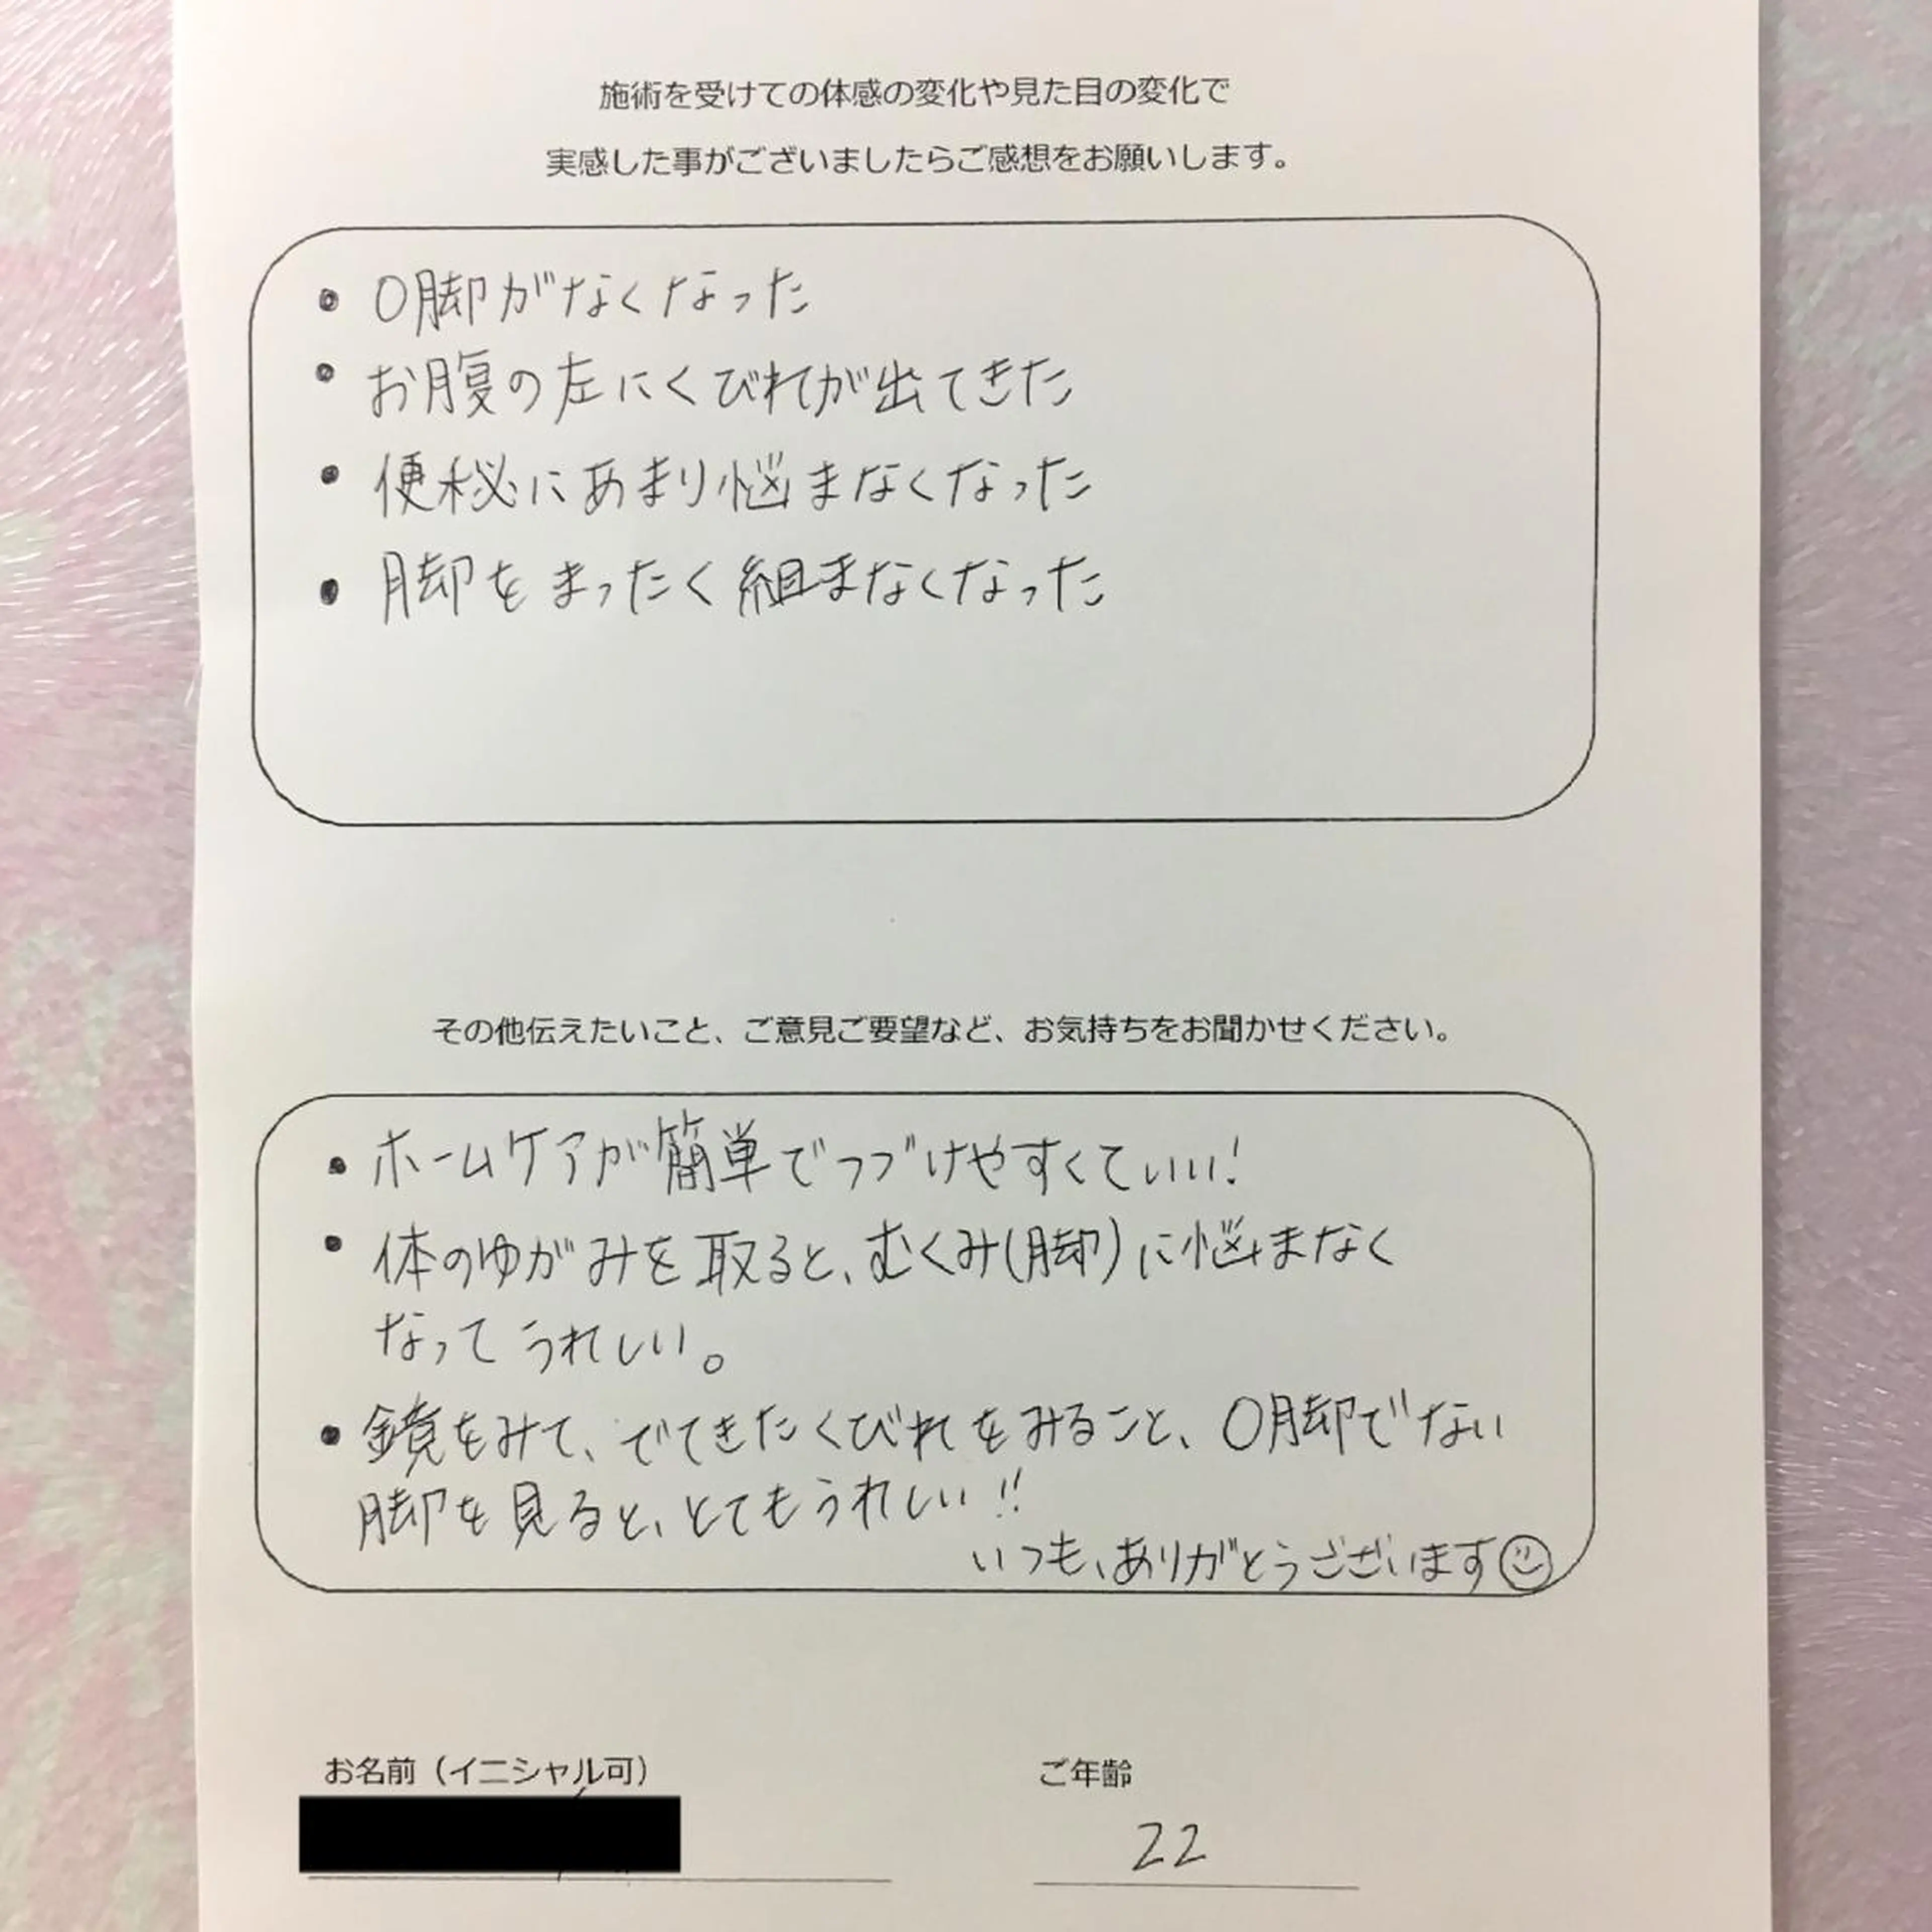 施術を受けての体感の変化や見た目の変化で
実感した事がございましたらご感想をお願いします。
• O脚がなくなった
• お腹の左にくびれが出てきた
• 便秘にあまり悩まなくなった
• 脚をまったく組まなくなった
その他伝えたいこと、ご意見ご要望など、お気持ちをお聞かせください。
• ホームケアが簡単でつづけやすくていい!
• 体のゆがみを取ると、むくみ(脚)に悩まなく
なってうれしい。
• 鏡をみて、でてきたくびれをみること、O脚でない
脚を見ると、とてもうれしい!!
いつも、ありがとうございます☺
お名前（イニシャル可）
ご年齢
22